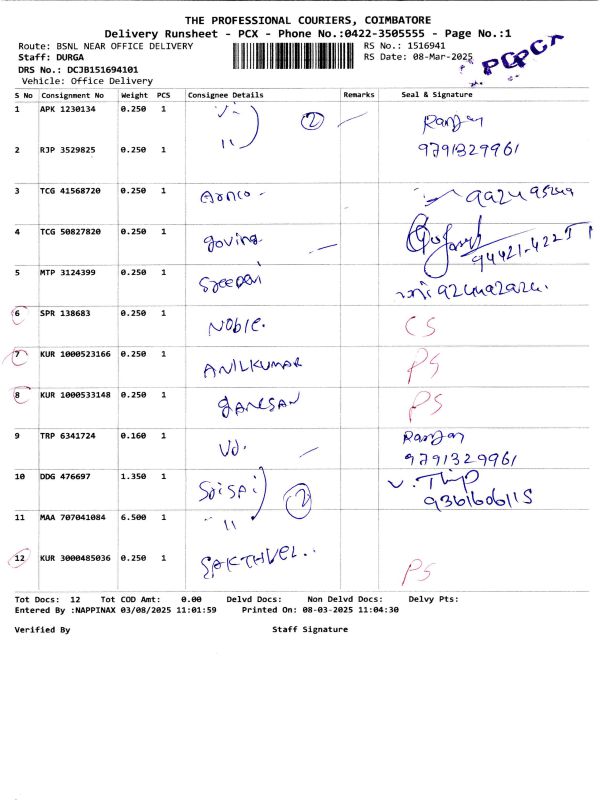 THE PROFESSIONAL COURIERS, COIMBATORE
Delivery Runsheet - PCX - Phone No.:0422-3505555 - Page No.:1
Route: BSNL NEAR OFFICE DELIVERY RS No.: 1516941
Staff: DURGA RS Date: 08-Mar-2025
DRS No.: DCJB151694101
Vehicle: Office Delivery
PCX
S No Consignment No Weight PCS Consignee Details Remarks Seal & Signature
1 APK 1230134 0.250 1 2 Ranjan
2 RJP 3529825 0.250 1 " 9791329961
3 TCG 41568720 0.250 1
4 TCG 50827820 0.250 1 govino 94421-42251
5 MTP 3124399 0.250 1
6 SPR 138683 0.250 1 NOBLE. CS
7 KUR 1000523166 0.250 1 ANILKUMAR PS
8 KUR 1000533148 0.250 1 GANESAN PS
9 TRP 6341724 0.160 1 Vd. Ranjan
9791329961
10 DDG 476697 1.350 1 Saisai 2
9361606115
11 MAA 707041084 6.500 1 "
12 KUR 3000485036 0.250 1 SAKTHVEL.. PS
Tot Docs: 12 Tot COD Amt: 0.00 Delvd Docs: Non Delvd Docs: Delvy Pts:
Entered By :NAPPINAX 03/08/2025 11:01:59 Printed On: 08-03-2025 11:04:30
Verified By Staff Signature